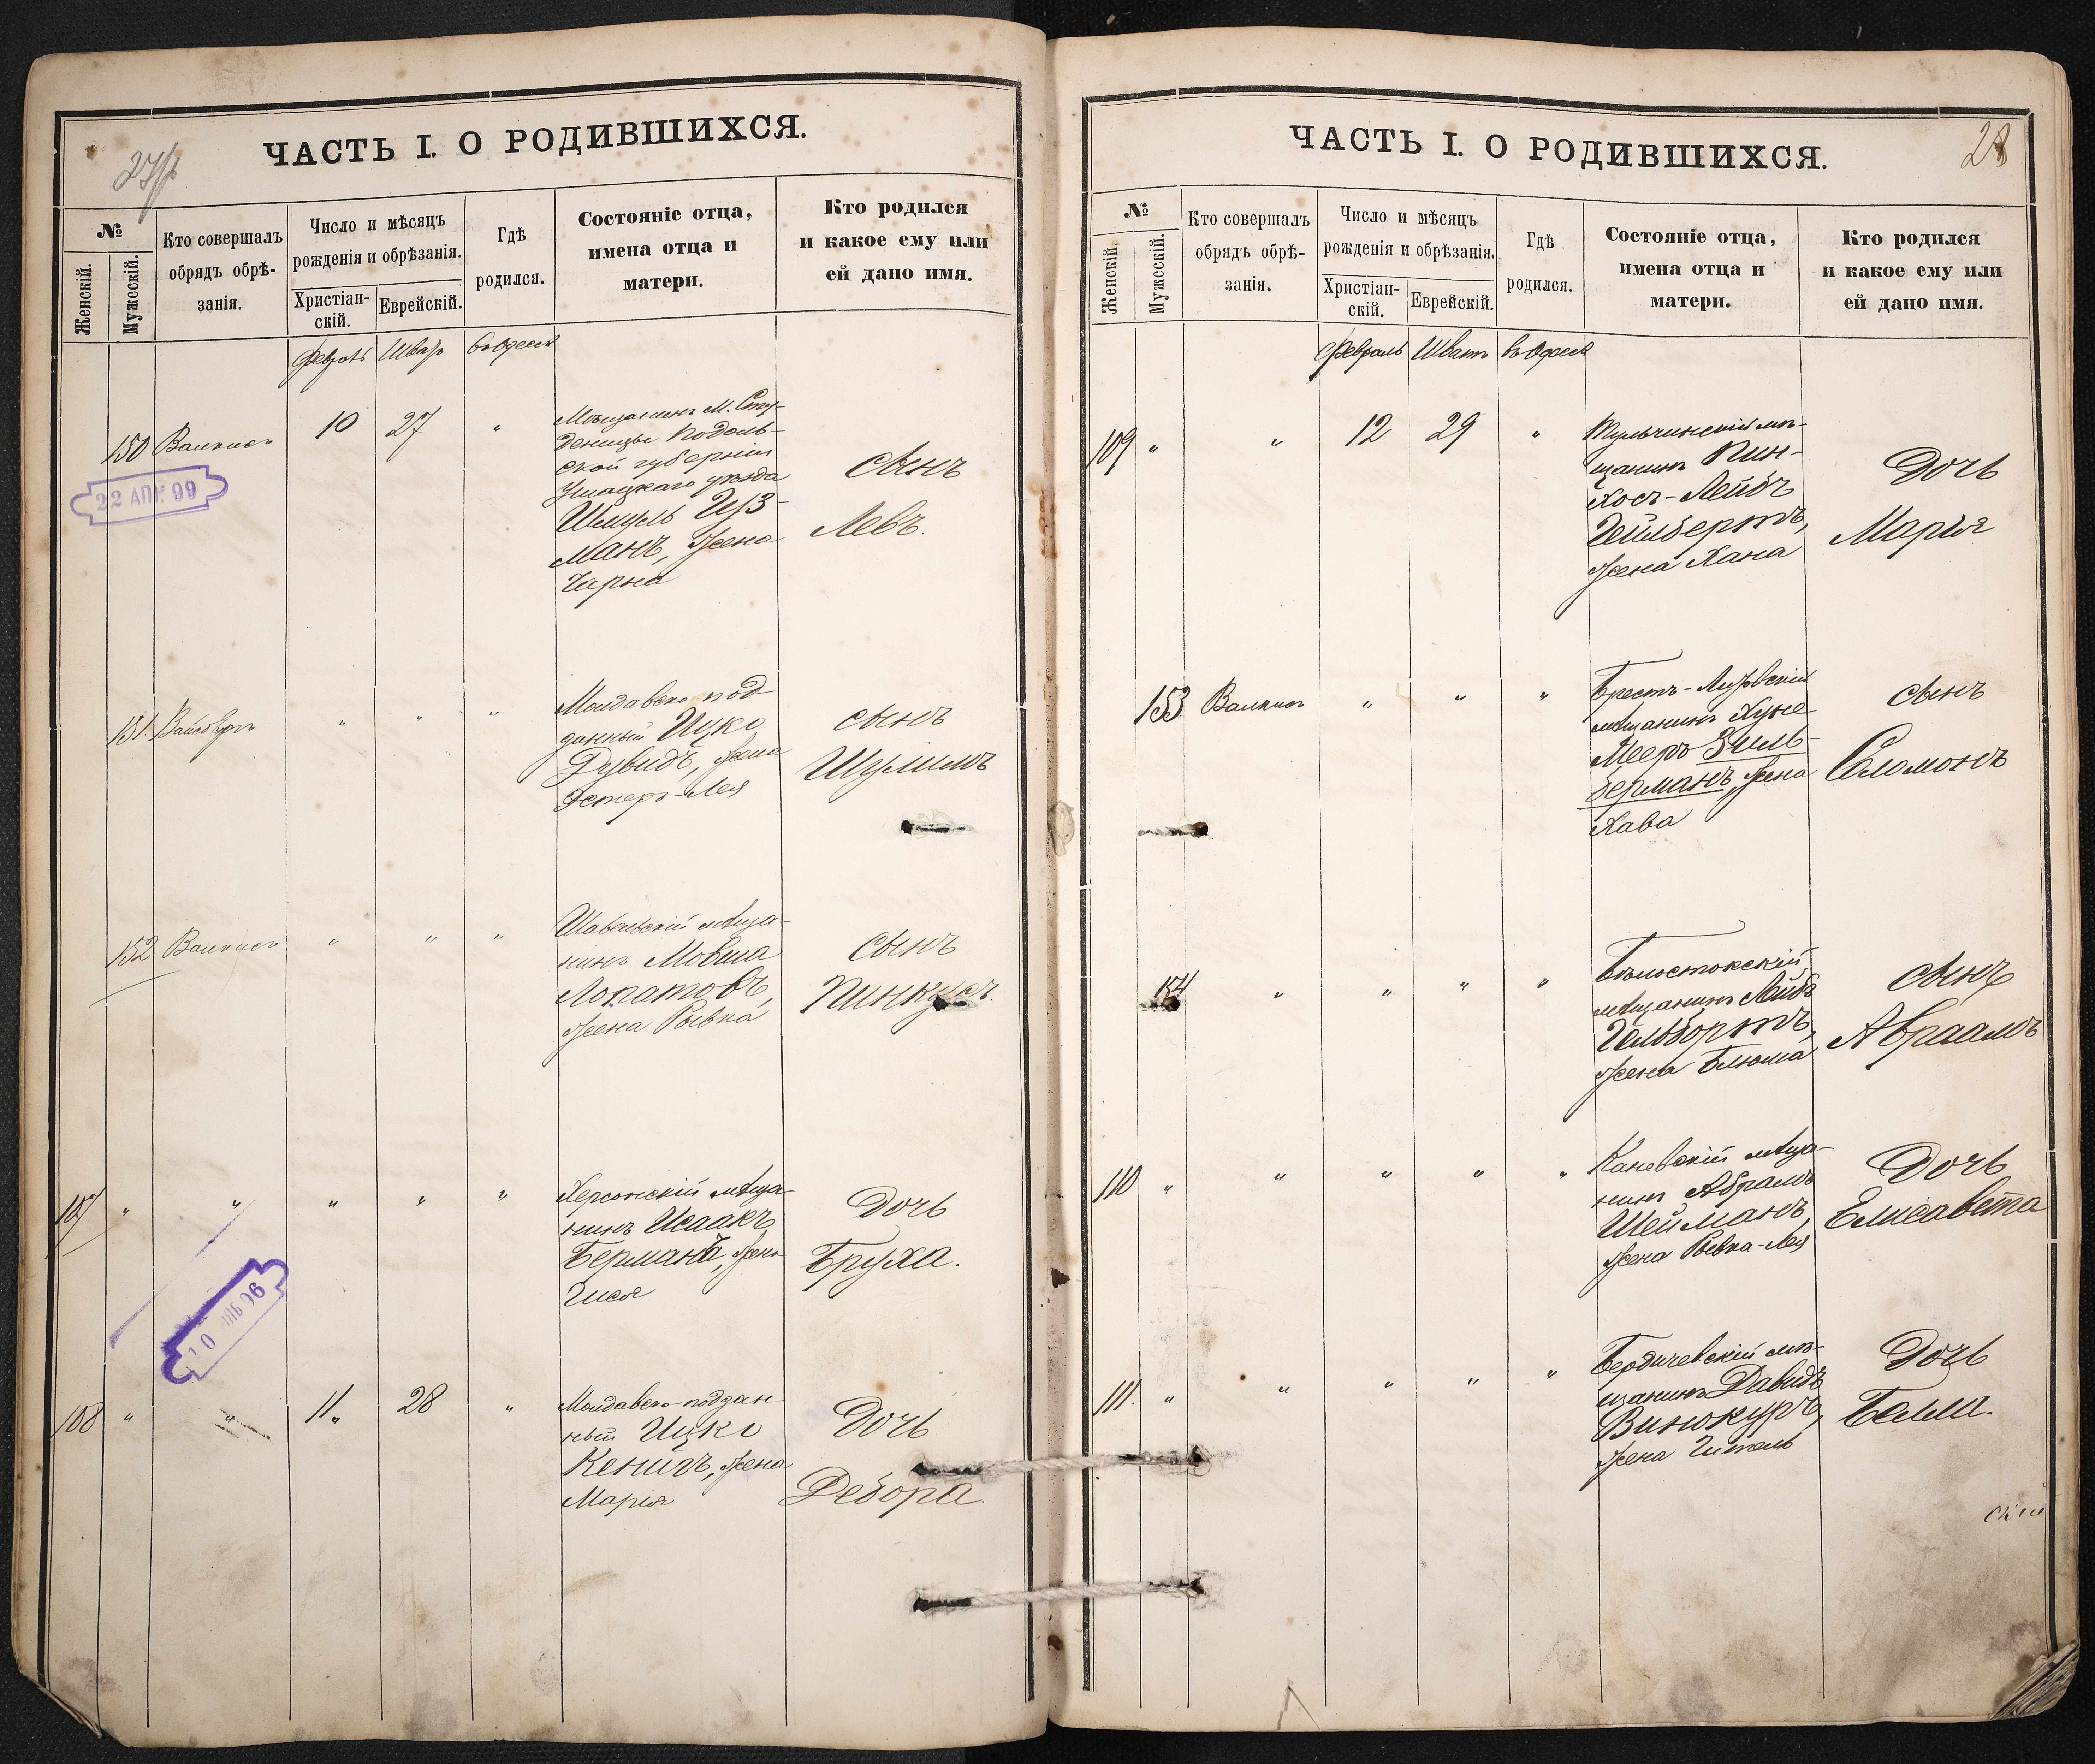 ЧАСТЬ I. О РОДИВШИХСЯ.
№
Женскій.
Мужескій.
Кто совершалъ
обрядъ обрѣ-
занія.
Число и мѣсяцъ
рожденія и обрѣзанія.
Христіан-
скій.
Еврейскій.
Гдѣ
родился.
Состояніе отца,
имена отца и
матери.
Кто родился
и какое ему или
ей дано имя.
въ Одессѣ
150
10
27
"
Мѣщанинъ М. Сту-
деницы Подоль-
ской губерніи
Ушицкаго уѣзда
Шмуль Из-
манъ, жена
Чарна
сынъ
Левъ.
22 АПР. 99
151.
"
"
"
Молдавско под-
данный Ицко
Дувидъ, жена
Эстеръ-Лея
сынъ
Шулимъ
152
"
"
"
Шавельскій мѣща-
нинъ Мовша
Лопатовъ,
жена Рывка
сынъ
Пинкусъ.
107
"
"
"
"
"
Херсонскій мѣща-
нинъ Исаакъ
Берманъ, жена
сынъ
Дочь
Бруха.
108
"
"
11.
28
"
Молдавско-поддан-
ный Ицко
Кенигъ, жена
Марія
Дочь
Дебора.
ЧАСТЬ I. О РОДИВШИХСЯ.
28
№
Женскій.
Мужескій.
Кто совершалъ
обрядъ обрѣ-
занія.
Число и мѣсяцъ
рожденія и обрѣзанія.
Христіан-
скій.
Еврейскій.
Гдѣ
родился.
Состояніе отца,
имена отца и
матери.
Кто родился
и какое ему или
ей дано имя.
Февраль
Шватъ
въ Одессѣ
109
"
"
12
29
"
Тульчинскій мѣ-
щанинъ Пин-
хосъ-Лейбъ
Гейлбертъ,
жена Хана
Дочь
Марія
153
"
"
"
Брестъ-Литовскій
мѣщанинъ Хуне
Мееръ Зиль-
берманъ, жена
Хава
сынъ
Соломонъ
154
"
"
"
"
Бѣлостокскій
мѣщанинъ Лейбъ
Гельбортъ,
жена Блюма
сынъ
Авраамъ
110
"
"
"
"
"
Каневскій мѣща-
нинъ Абрамъ
Шейманъ,
жена Рывка-Лея
Дочь
Елисавета
111.
"
"
"
"
"
Бердичевскій мѣ-
щанинъ Давидъ
Винокуръ,
жена Гитель
Дочь
Белла.